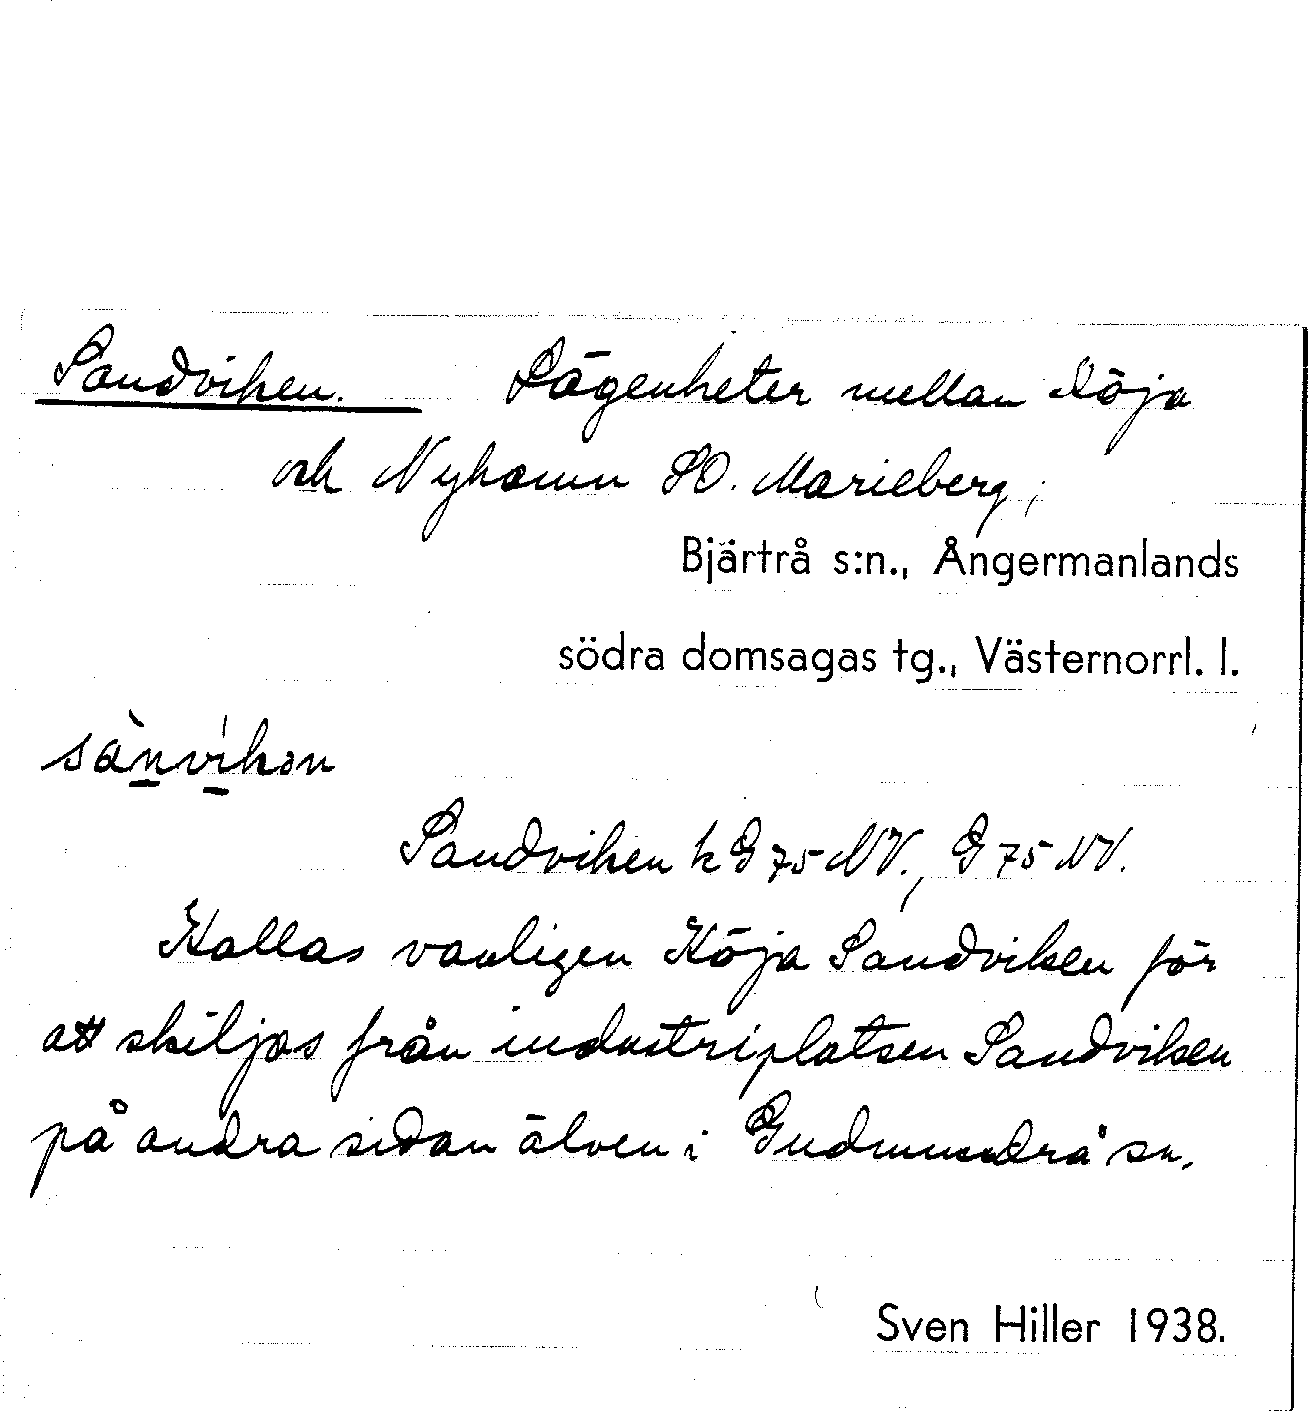 Sandviken. Lägenheter mellan Köja
och Nyhamn SO. Marieberg,
Bjärtrå s:n., Ångermanlands
södra domsagas tg., Västernorrl. l.
sànvíkən
Sandviken k G 75 NV., G 75 NV.
Kallas vanligen Köja Sandviken för
att skiljas från industriplatsen Sandviken
på andra sidan älven i Gudmundrå sn.
Sven Hiller 1938.